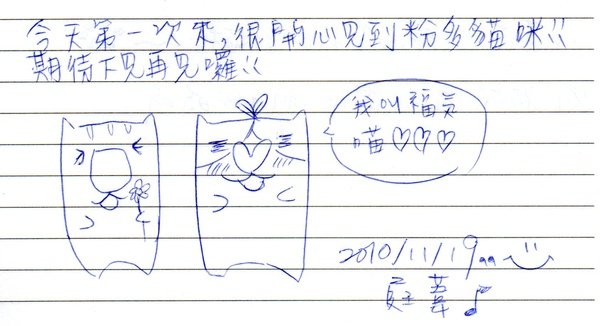 今天第一次來,很開心見到粉多多貓咪!!
期待下見再見囉!!
我叫福员
喵♡♡♡
2010/11/19
庭葦♪